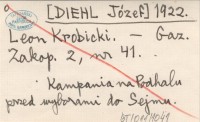 [DIEHL Józef] 1922.
Leon Krobicki. – Gaz.
Zakop. 2, nr 41.
Kampania na Podhalu
przed wyborami do Sejmu.